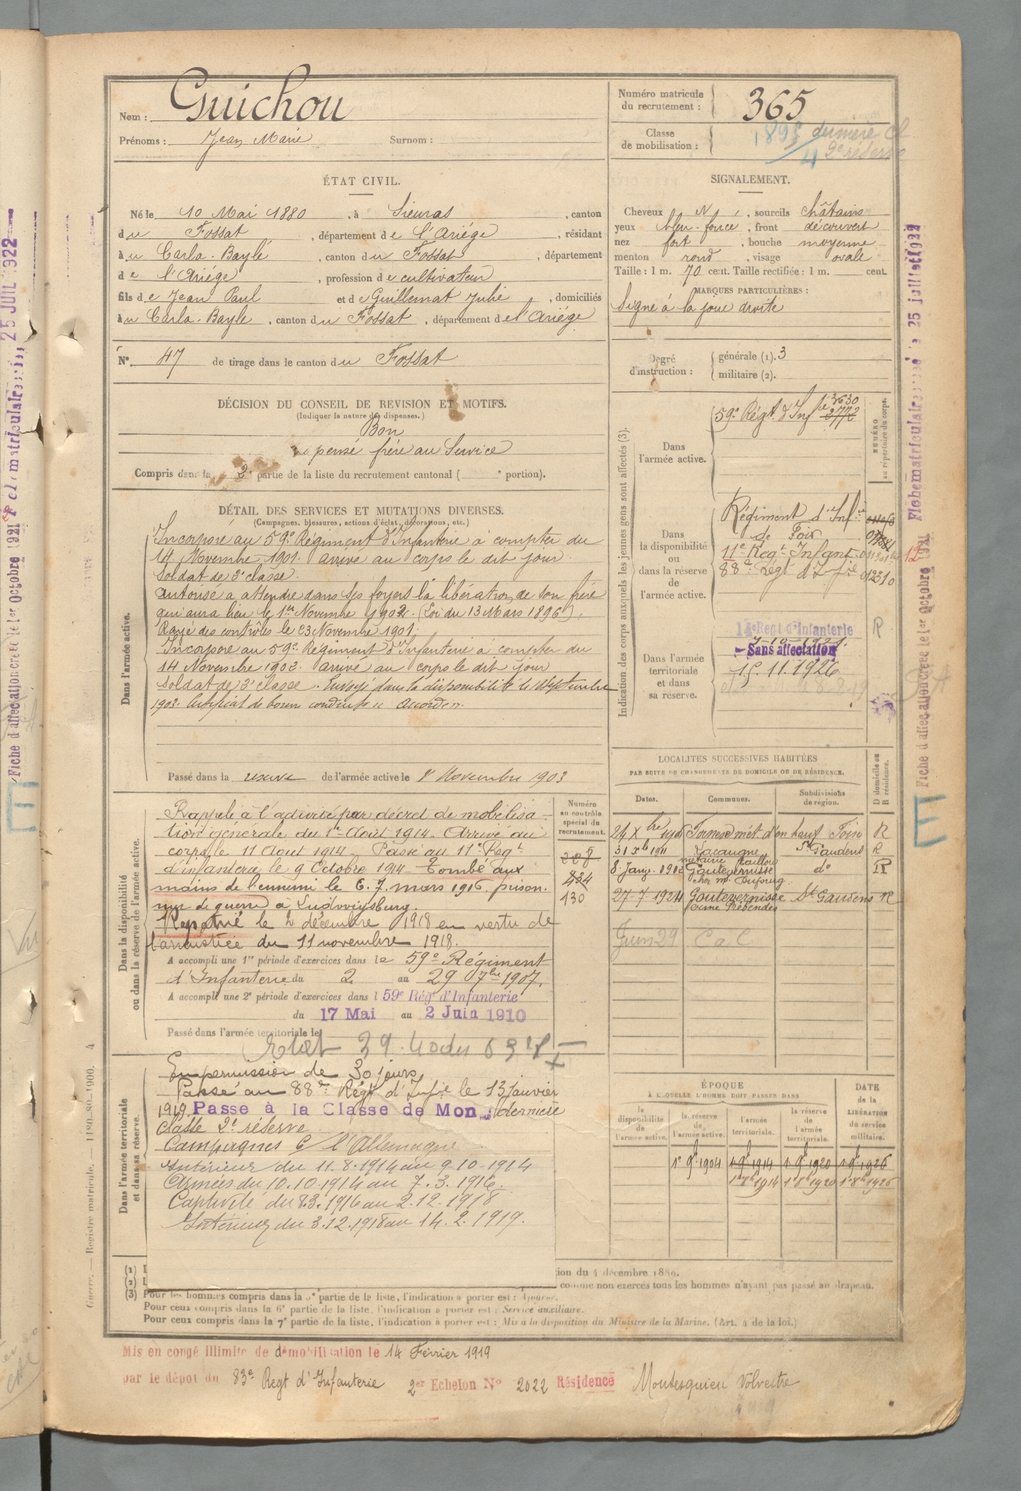 Nom : Guichou
Prénoms : Jean Marie Surnom :
Numéro matricule du recrutement : 365
Classe de mobilisation : 1893 dernière Cl
2e réserve
ÉTAT CIVIL.
Né le 10 Mai 1880, à Sieuras, canton
du Fossat, département de l'Ariège, résidant
à u Carla-Bayle, canton du Fossat, département
de l'Ariège, profession de cultivateur
fils de Jean Paul et de Guillemat Julie, domiciliés
à u Carla-Bayle, canton du Fossat, département de l'Ariège
N° 47 de tirage dans le canton du Fossat
SIGNALEMENT.
Cheveux N, sourcils châtains
yeux bleu-foncé, front découvert
nez fort, bouche moyenne
menton rond, visage ovale
Taille : 1 m. 70 cent. Taille rectifiée : 1 m. cent.
MARQUES PARTICULIÈRES :
Signe à la joue droite
Degré d'instruction : générale (1). 3
militaire (2).
DÉCISION DU CONSEIL DE REVISION ET MOTIFS.
(Indiquer la nature des dispenses.)
Bon
frère au Service
Compris dans la 2e partie de la liste du recrutement cantonal ( e portion).
DÉTAIL DES SERVICES ET MUTATIONS DIVERSES.
(Campagnes, blessures, actions d'éclat, décorations, etc.)
Dans l'armée active.
Incorporé au 59e Régiment d'Infanterie à compter du
14 Novembre 1901. arrivé au corps le dit jour
Soldat de 2e classe.
Autorisé à attendre dans ses foyers la libération de son frère
qui aura lieu le 1er Novembre 1902. (Loi du 13 Mars 1896).
Rayé des contrôles le 23 Novembre 1901.
Incorporé au 59e Régiment d'Infanterie à compter du
14 Novembre 1902. arrivé au corps le dit jour
Soldat de 2e classe. Envoyé dans la disponibilité le Septembre
1903. Certificat de bonne conduite accordé.
Passé dans la réserve de l'armée active le 1er Novembre 1903
Indication des corps auxquels les jeunes gens sont affectés (3).
NUMÉRO au répertoire du corps.
Dans l'armée active.
59e Régt d'Inf
Dans la disponibilité ou dans la réserve de l'armée active.
Régiment d'Infie
de Foix
11e Régt Infant
88e Régt d'Infie
Dans l'armée territoriale et dans sa réserve.
14e Regt d'Infanterie R
Sans affectation
15.11.1926
LOCALITÉS SUCCESSIVES HABITÉES
PAR SUITE DE CHANGEMENTS DE DOMICILE OU DE RÉSIDENCE.
Dates. Communes. Subdivisions de région. D domicile ou R résidence.
31 Xbre 1911 Lacaugne St Gaudens R
8 Janv. 1912 Goutevernisse do R
27-7 1924 Goutevernisse St Gaudens R
Juin 29
Dans la disponibilité ou dans la réserve de l'armée active.
Numéro au contrôle spécial du recrutement.
Rappelé à l'activité par décret de mobilisa-
tion générale du 1er Août 1914. Arrivé au
corps le 11 Août 1914. Passé au 11e Régt
d'infanterie le 9 Octobre 1914 Tombé aux
mains de l'ennemi le 6.7 mars 1916. prison-
nier de guerre à Ludwigsburg.
130
Rapatrié le 2 décembre 1918 en vertu de
l'armistice du 11 novembre 1918.
A accompli une 1re période d'exercices dans le 59e Régiment
d'Infanterie du 2 au 29 7bre 1907.
A accompli une 2e période d'exercices dans l 59e Régt d'Infanterie
du 17 Mai au 2 Juin 1910
Passé dans l'armée territoriale le
Dans l'armée territoriale et dans sa réserve.
En permission de 30 jours
Passé au 88e Régt d'Infie le 13 janvier
1919 Passé à la Classe de Mon dernière
classe 2e réserve
Campagnes C l'Allemagne
Intérieur du 11-8-1914 au 9-10-1914
Armées du 10.10.1914 au 7.3.1916.
Captivité du 8.3.1916 au 2.12.1918
Intérieur du 3.12.1918 au 14.2.1919.
ÉPOQUE
À LAQUELLE L'HOMME DOIT PASSER DANS
DATE de la LIBÉRATION du service militaire.
la disponibilité de l'armée active. la réserve de l'armée active. l'armée territoriale. la réserve de l'armée territoriale.
1er 9bre 1904 1 9bre 1914 1 9bre 1920 1 9bre 1926
ion du 4 décembre 1889.
comme non exercés tous les hommes n'ayant pas passé au drapeau.
(1)
(2)
(3) Pour les hommes compris dans la partie de la liste, l'indication à porter est : Ajourné.
Pour ceux compris dans la 6e partie de la liste, l'indication à porter est : Service auxiliaire.
Pour ceux compris dans la 7e partie de la liste, l'indication à porter est : Mis à la disposition du Ministre de la Marine. (Art. 4 de la loi.)
Mis en congé illimité de démobilisation le 14 Février 1919
par le dépôt du 83e Regt d'Infanterie 2er Echelon N° 2022 Résidence Montesquieu Volvestre
Guerre. — Registre matricule.